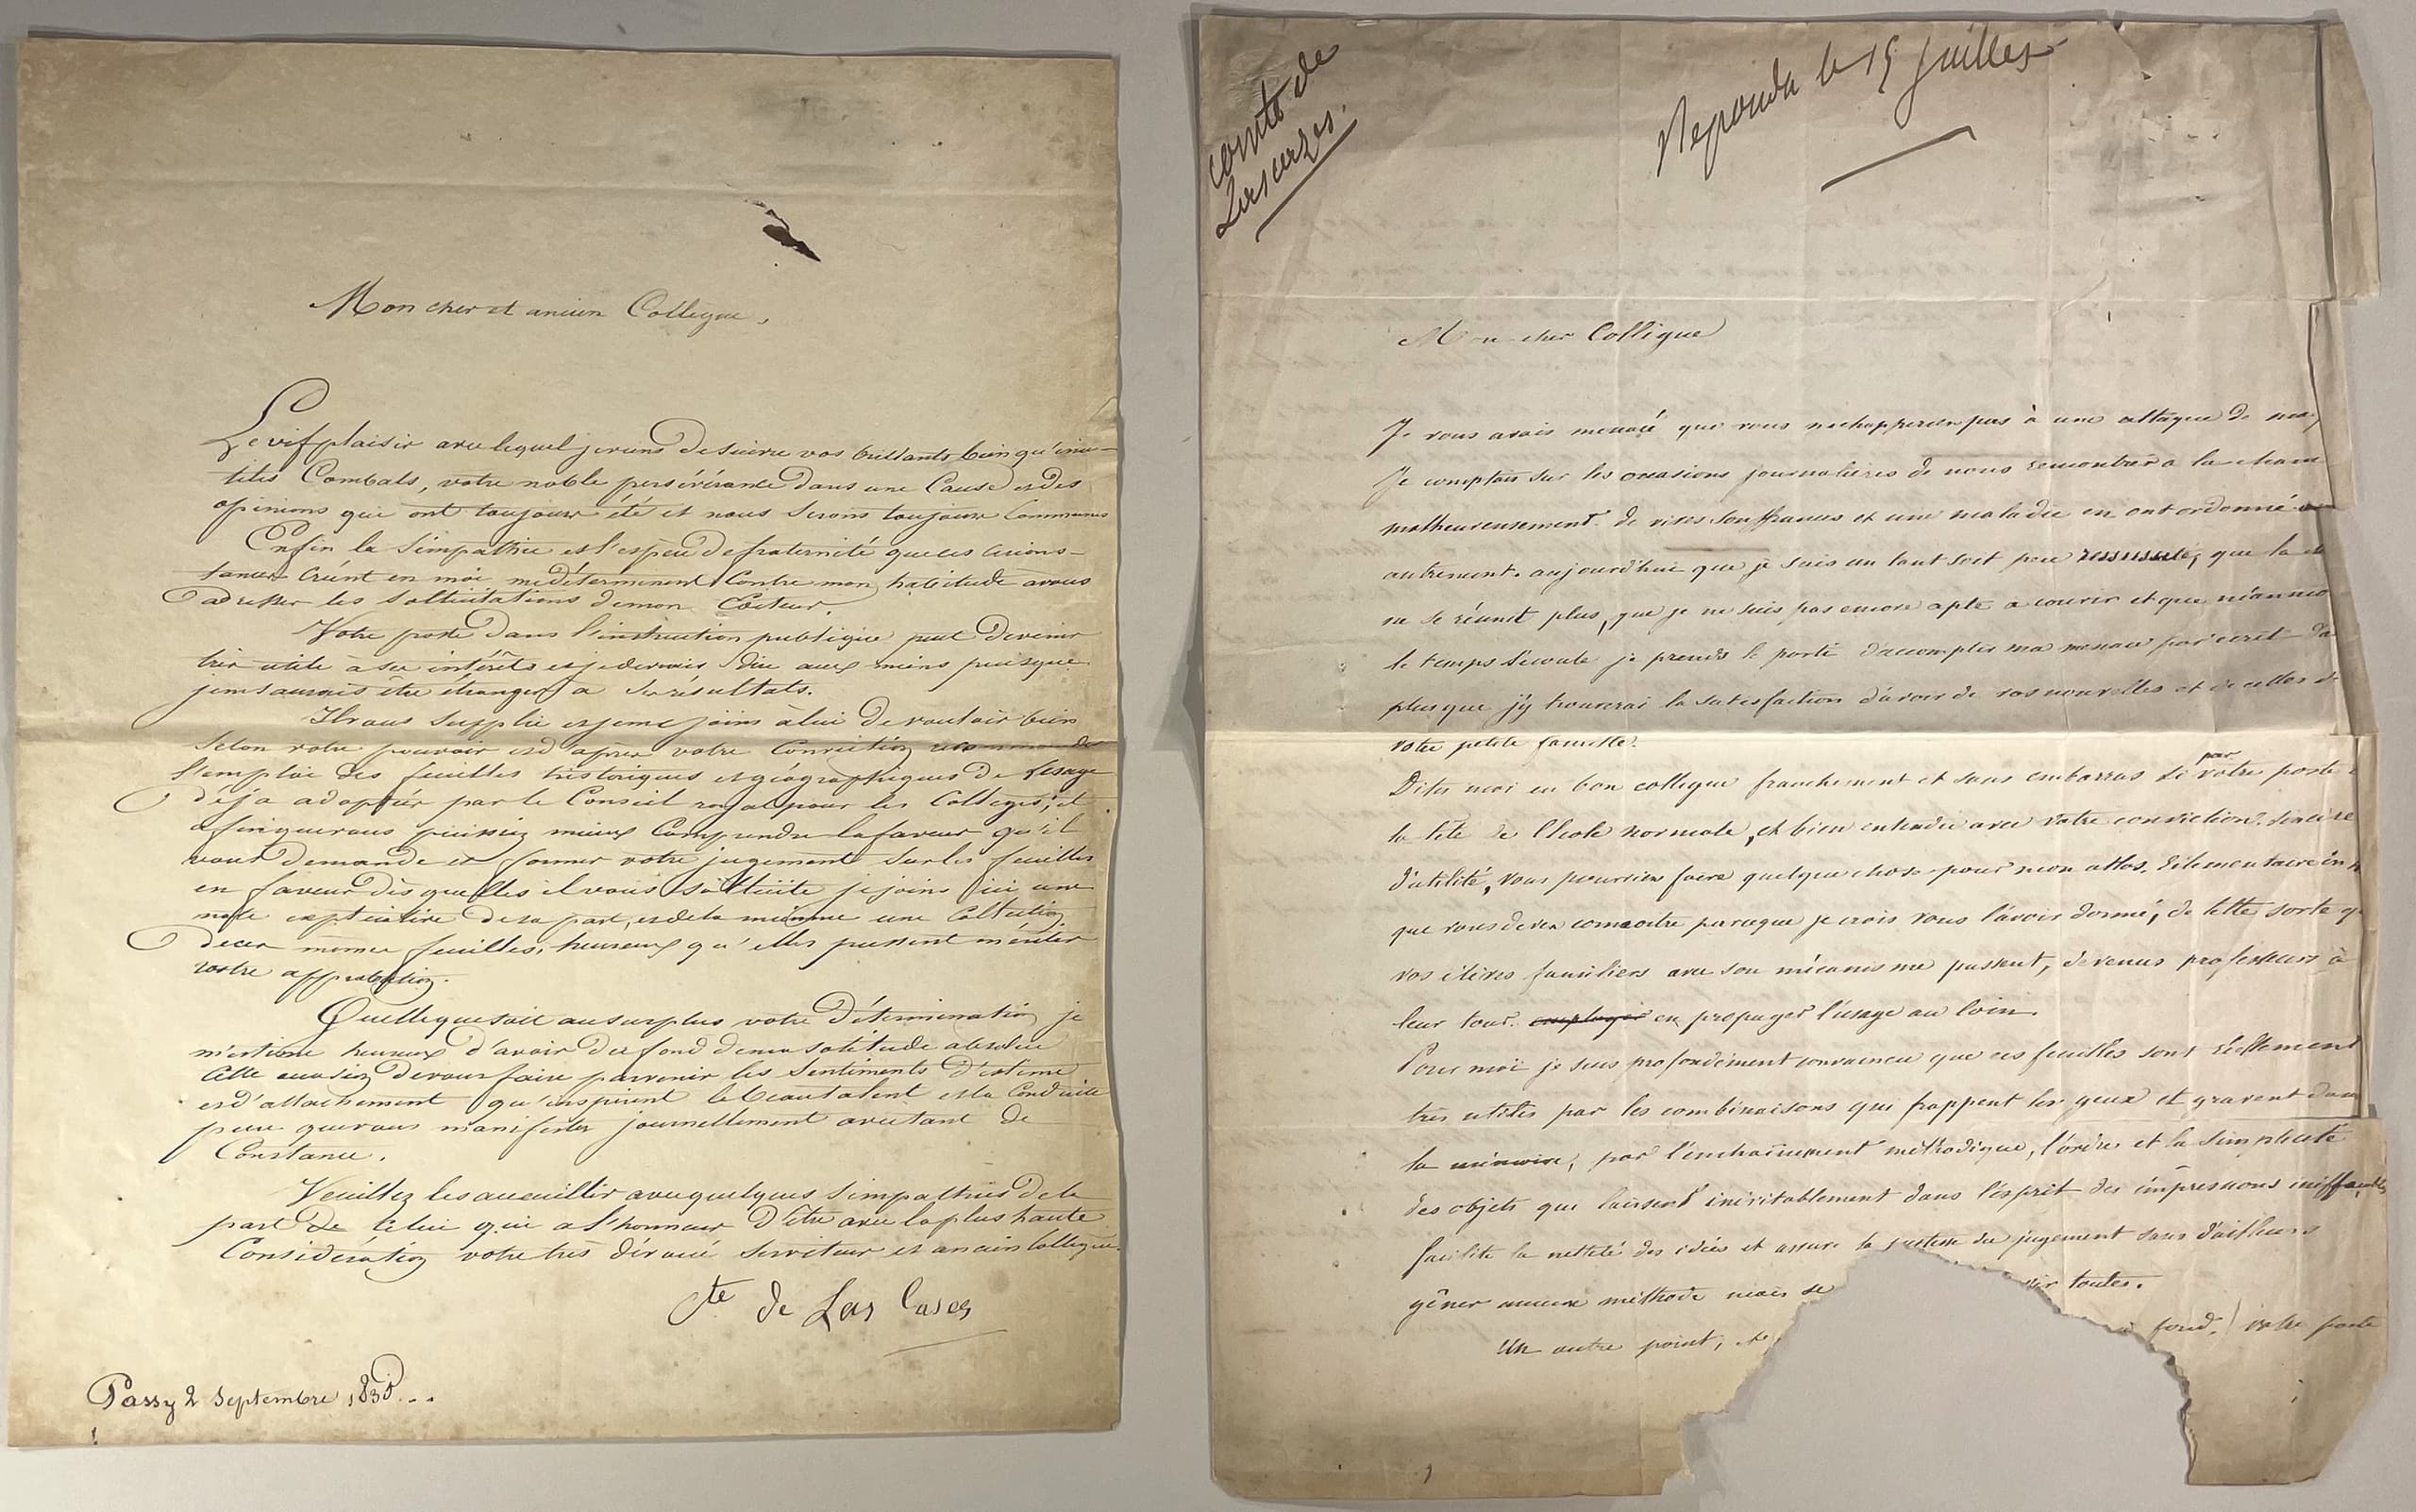 Mon cher et ancien Collegue,
Le vif plaisir avec lequel je viens de suivre vos brillants bien qu'inu-
tiles Combats, votre noble persévérance dans une Cause et des
opinions qui ont toujours été et nous serons toujours Communes
Enfin la Simpathie et l'espèce de fraternité que ces Circons-
tances Créent en moi me déterminent Contre mon habitude a vous
adresser les Sollicitations de mon Editeur.
Votre poste Dans l'instruction publique peut Devenir
très utile à ses intérêts et je devrais dire aux miens puisque
je ne saurais être étranger a Ses résultats.
Il vous Supplie et je me joins à lui De vouloir bien
Selon votre pouvoir et d'après votre Conviction recommander
l'emploi des feuilles historiques et géographiques De Lesage
déja adoptées par le Conseil royal pour les Colleges; et
afin que vous puissiez mieux Comprendre la faveur qu'il
vous demande et former votre jugement Sur les feuilles
en faveur des quelles il vous Sollicite je joins ici une
note explicative De sa part, et de la mienne une Collection
De ces memes feuilles, heureux qu'elles pussent mériter
votre approbation.
Quelle que soit au surplus votre Détermination je
m'estime heureux d'avoir Du fond de ma solitude absolue
Cette occasion De vous faire parvenir les Sentiments D'estime
et d'attachement qu'inspirent le beau talent et la Conduite
pure que vous manifestez journellement avec tant de
Constance.
Veuillez les accueillir avec quelques Simpathies De la
part De Celui qui a l'honneur D'être avec la plus haute
Considération votre très dévoué Serviteur et ancien Collegue.
Cte de Las Cases
Passy 2 Septembre 183
Comte de
Lascazes.
Repondu le 15 juillet
Mon cher Collègue
Je vous avais menacé que vous n'echapperiez pas à une attaque de ma
Je comptais sur les occasions journalières de nous rencontrer a la cham
malheureusement de vives souffrances et une maladie en ont ordonné
autrement. aujourd'hui que je suis un tant soit peu ressuscité, que la
ne se réunit plus, que je ne suis pas encore apte a courir et que néanmo
le temps s'écoule je prends le parti d'accomplir ma menace par écrit
plus que j'y trouverai la satisfaction d'avoir de vos nouvelles et de celles de
votre petite famille.
Dites moi en bon collegue franchement et sans embarras si par votre poste
la tête de l'école normale, et bien entendu avec votre conviction sincère
d'utilité, vous pourriez faire quelque chose pour mon atlas élémentaire in
que vous devez connaitre parceque je crois vous l'avoir donné, de telle sorte q
vos élèves familiers avec son mécanisme pussent, devenus professeurs à
leur tour en propager l'usage au loin.
Pour moi je suis profondément convaincu que ces feuilles sont réellement
très utiles par les combinaisons qui frappent les yeux et gravent dans
la mémoire, par l'enchaînement méthodique, l'ordre et la simplicité
des objets qui laissent inévitablement dans l'esprit des impressions ineffaçables
facilite la netteté des idées et assure la justesse du jugement sans d'ailleurs
gêner aucune méthode mais se toutes.
Un autre point, fond, votre poste